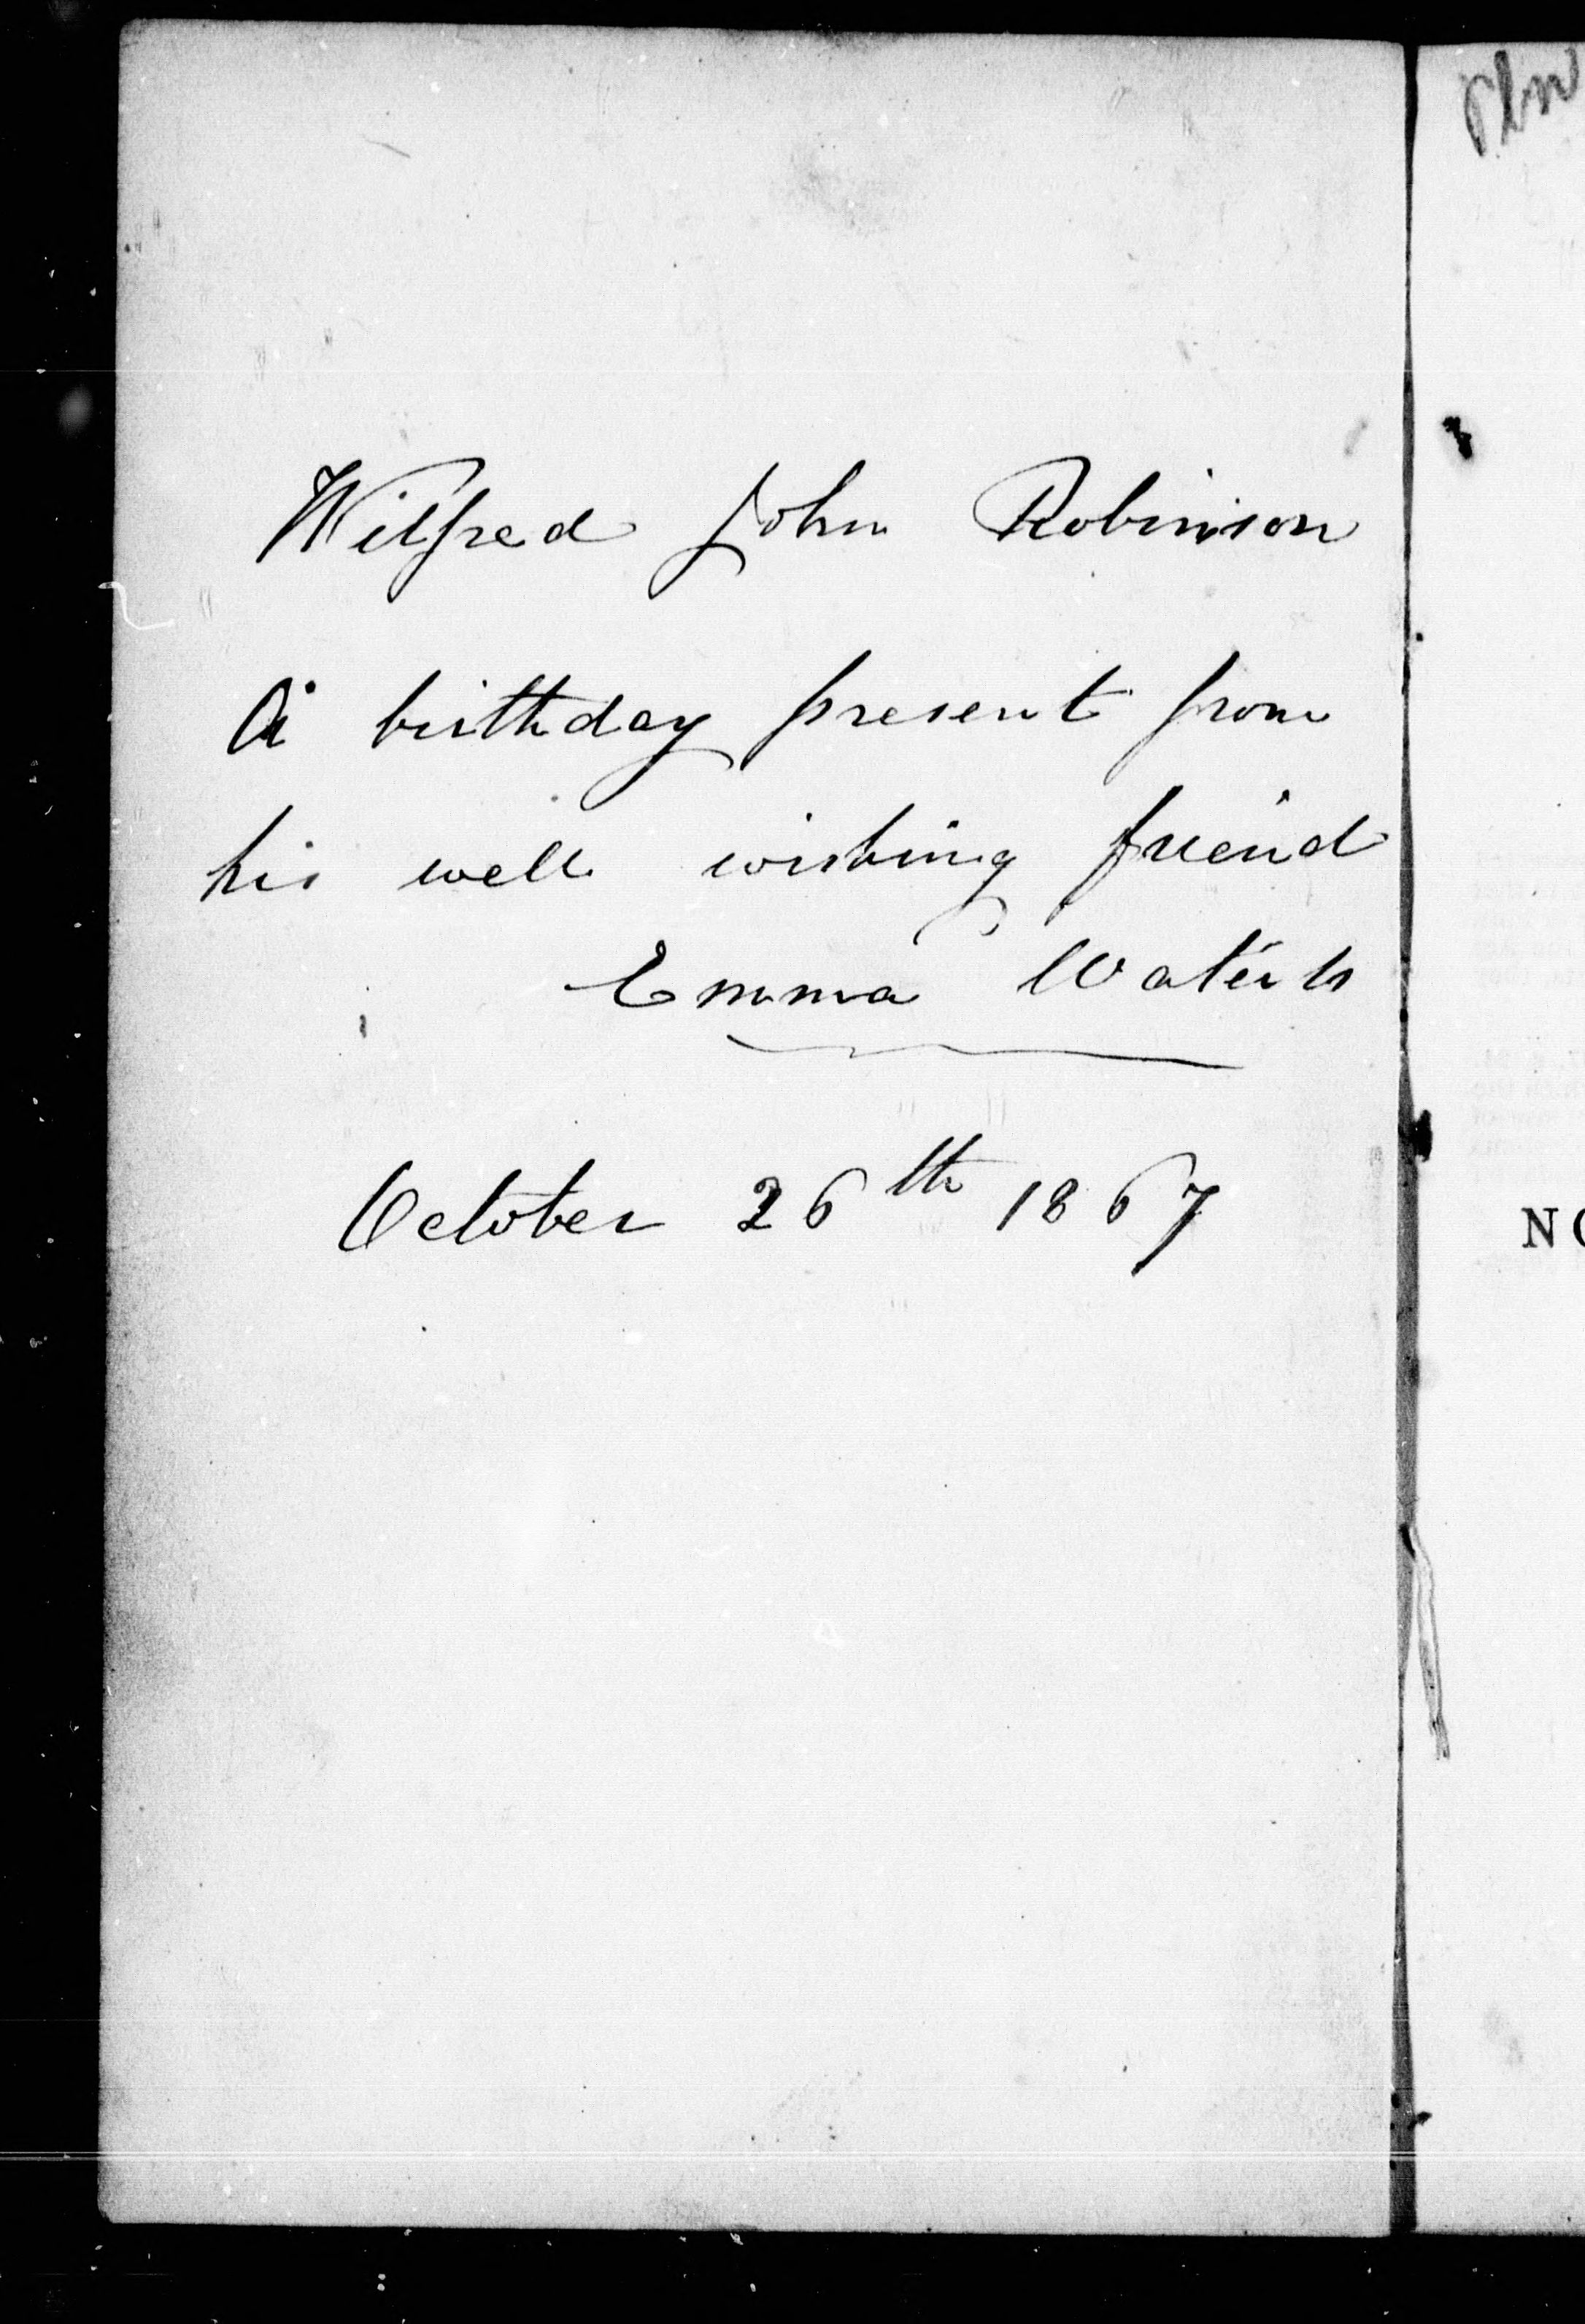 Wilfred John Robinson
A birthday present from
his well wishing friend
Emma Waters
October 26th 1867